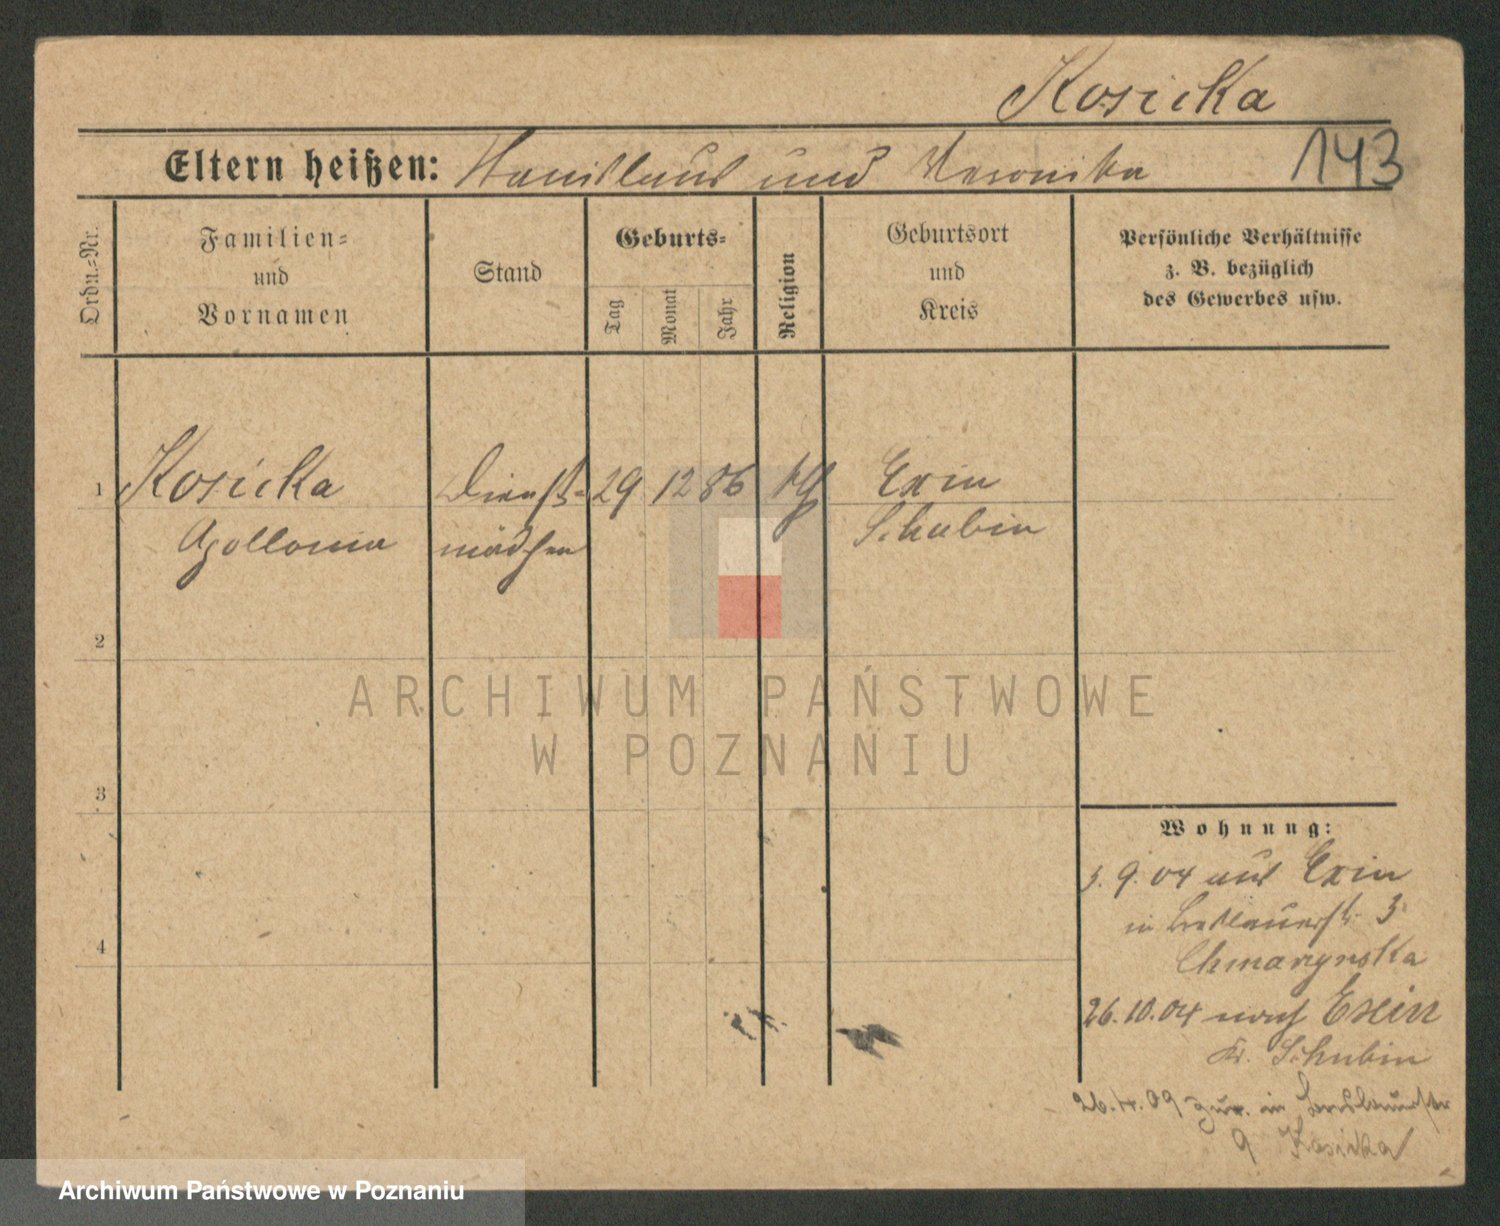 Kosicka
Eltern heißen: Stanislaus und Veronika
143
Ordn.-Nr.
Familien-
und
Vornamen
Stand
Geburts-
Tag
Monat
Jahr
Religion
Geburtsort
und
Kreis
Persönliche Verhältnisse
z. B. bezüglich
des Gewerbes usw.
1 Kosicka Dienst- 29 12 86 kth Exin
Apollonia mädchen Schubin
2
3
4
Wohnung:
3. 9. 04 aus Exin
in Breslauerstr. 3
26. 10. 04 nach Exin
Kr. Schubin
26. 4. 09 zur. in Breslauerstr
9 Kosicka
ARCHIWUM PAŃSTWOWE
W POZNANIU
Archiwum Państwowe w Poznaniu